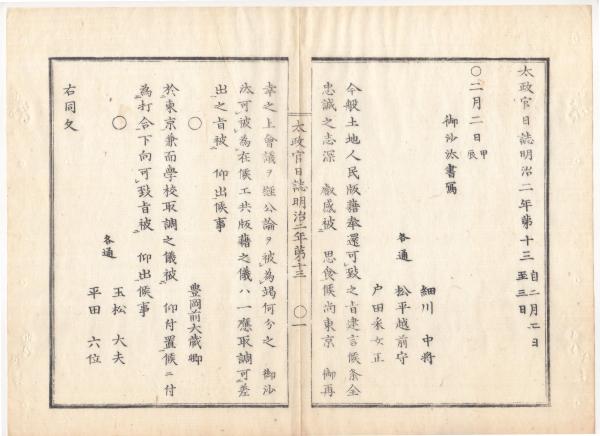 太政官日誌明治二年第十三 自二月二日 至三日
〇二月二日 甲辰
御沙汰書寫
細川 中將
各通 松平越前守
戸田采女正
今般土地人民版籍奉還可致之旨建言候条全
忠誠之志深 叡感被 思食候尚東京 御再
太政官日誌明治二年第十三 〇一
幸之上會議ヲ經公論ヲ被為竭何分之 御沙
汰可被為在候ヱ共版籍之儀ハ一應取調可差
出之旨被 仰出候事
〇 豊岡前大藏卿
於東京兼而學校取調之儀被 仰付置候ニ付
為打合下向可致旨被 仰出候事
〇 各通 玉松 大夫
平田 六位
右同文